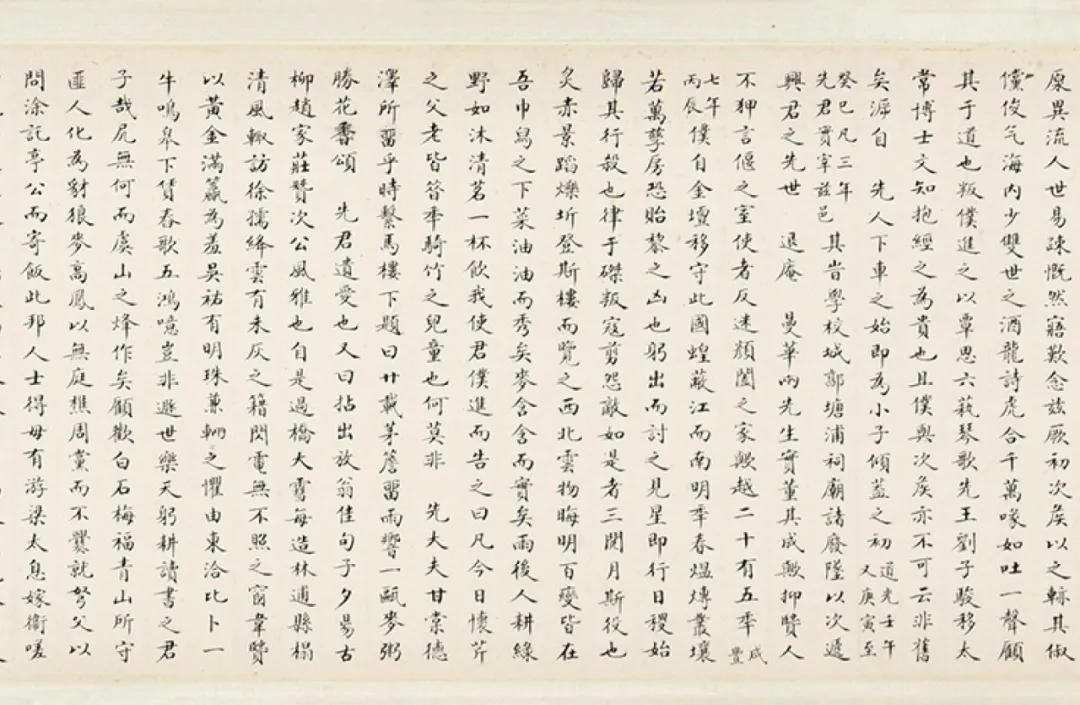 原異流人世易疎慨然寤歎念茲厥初次矦以之軼其俶
儻俊气海内少雙世之酒龍詩虎合千萬喙如吐一聲顧
其于道也叛僕進之以覃思六蓺琴歌先王劉子駿移太
常博士文知抱經之為貴也且僕與次矦亦不可云非舊
矣溯自 先人下車之始即為小子傾蓋之初道光壬午又庚寅至
癸巳凡三年先君實宰茲邑其旹學校城郭塘浦祠廟諸廢隆以次遞
興君之先世 退庵 曼華兩先生實董其成歟抑贊人
不狎言偃之室使者反迷顏闔之家歟越二十有五秊咸豐
七年丙辰僕自金壇移守此國蝗蔽江而南明秊春熅煿叢壤
若萬孽房恐貽黎之凶也躬出而討之見星即行日稷始
歸其行殺也律于磔叛寇剪怨敵如是者三閱月斯役也
炙赤景蹈爍圻登斯樓而覽之西北雲物晦明百變皆在
吾巾舄之下菜油油而秀矣麥含含而實矣雨後人耕綠
野如沐清茗一杯飲我使君僕進而告之曰凡今日懷芹
之父老皆昝秊騎竹之兒童也何莫非 先大夫甘棠德
澤所畱乎時繫馬樓下題曰廿載茅簷畱雨響一甌麥粥
勝花香頌 先君遺愛也又曰拈出放翁佳句子夕昜古
柳趙家莊贊次公風雅也自是過橋大霅每造林逋縣榻
清風輙訪徐孺絳雲有未仄之籍閃電無不照之窗韋賢
以黃金滿籯為羞吳祐有明珠兼輛之懼由東洽比卜一
牛鳴皋下賃舂歌五鴻噫豈非遯世樂天躬耕讀書之君
子哉凥無何而虞山之烽作矣顧歡白石梅福青山所守
匪人化為豺狼麥高鳳以無庭樵周黨而不爨就弩父以
問涂託亭公而寄飯此邦人士得毋有游梁太息嫁衛嗟